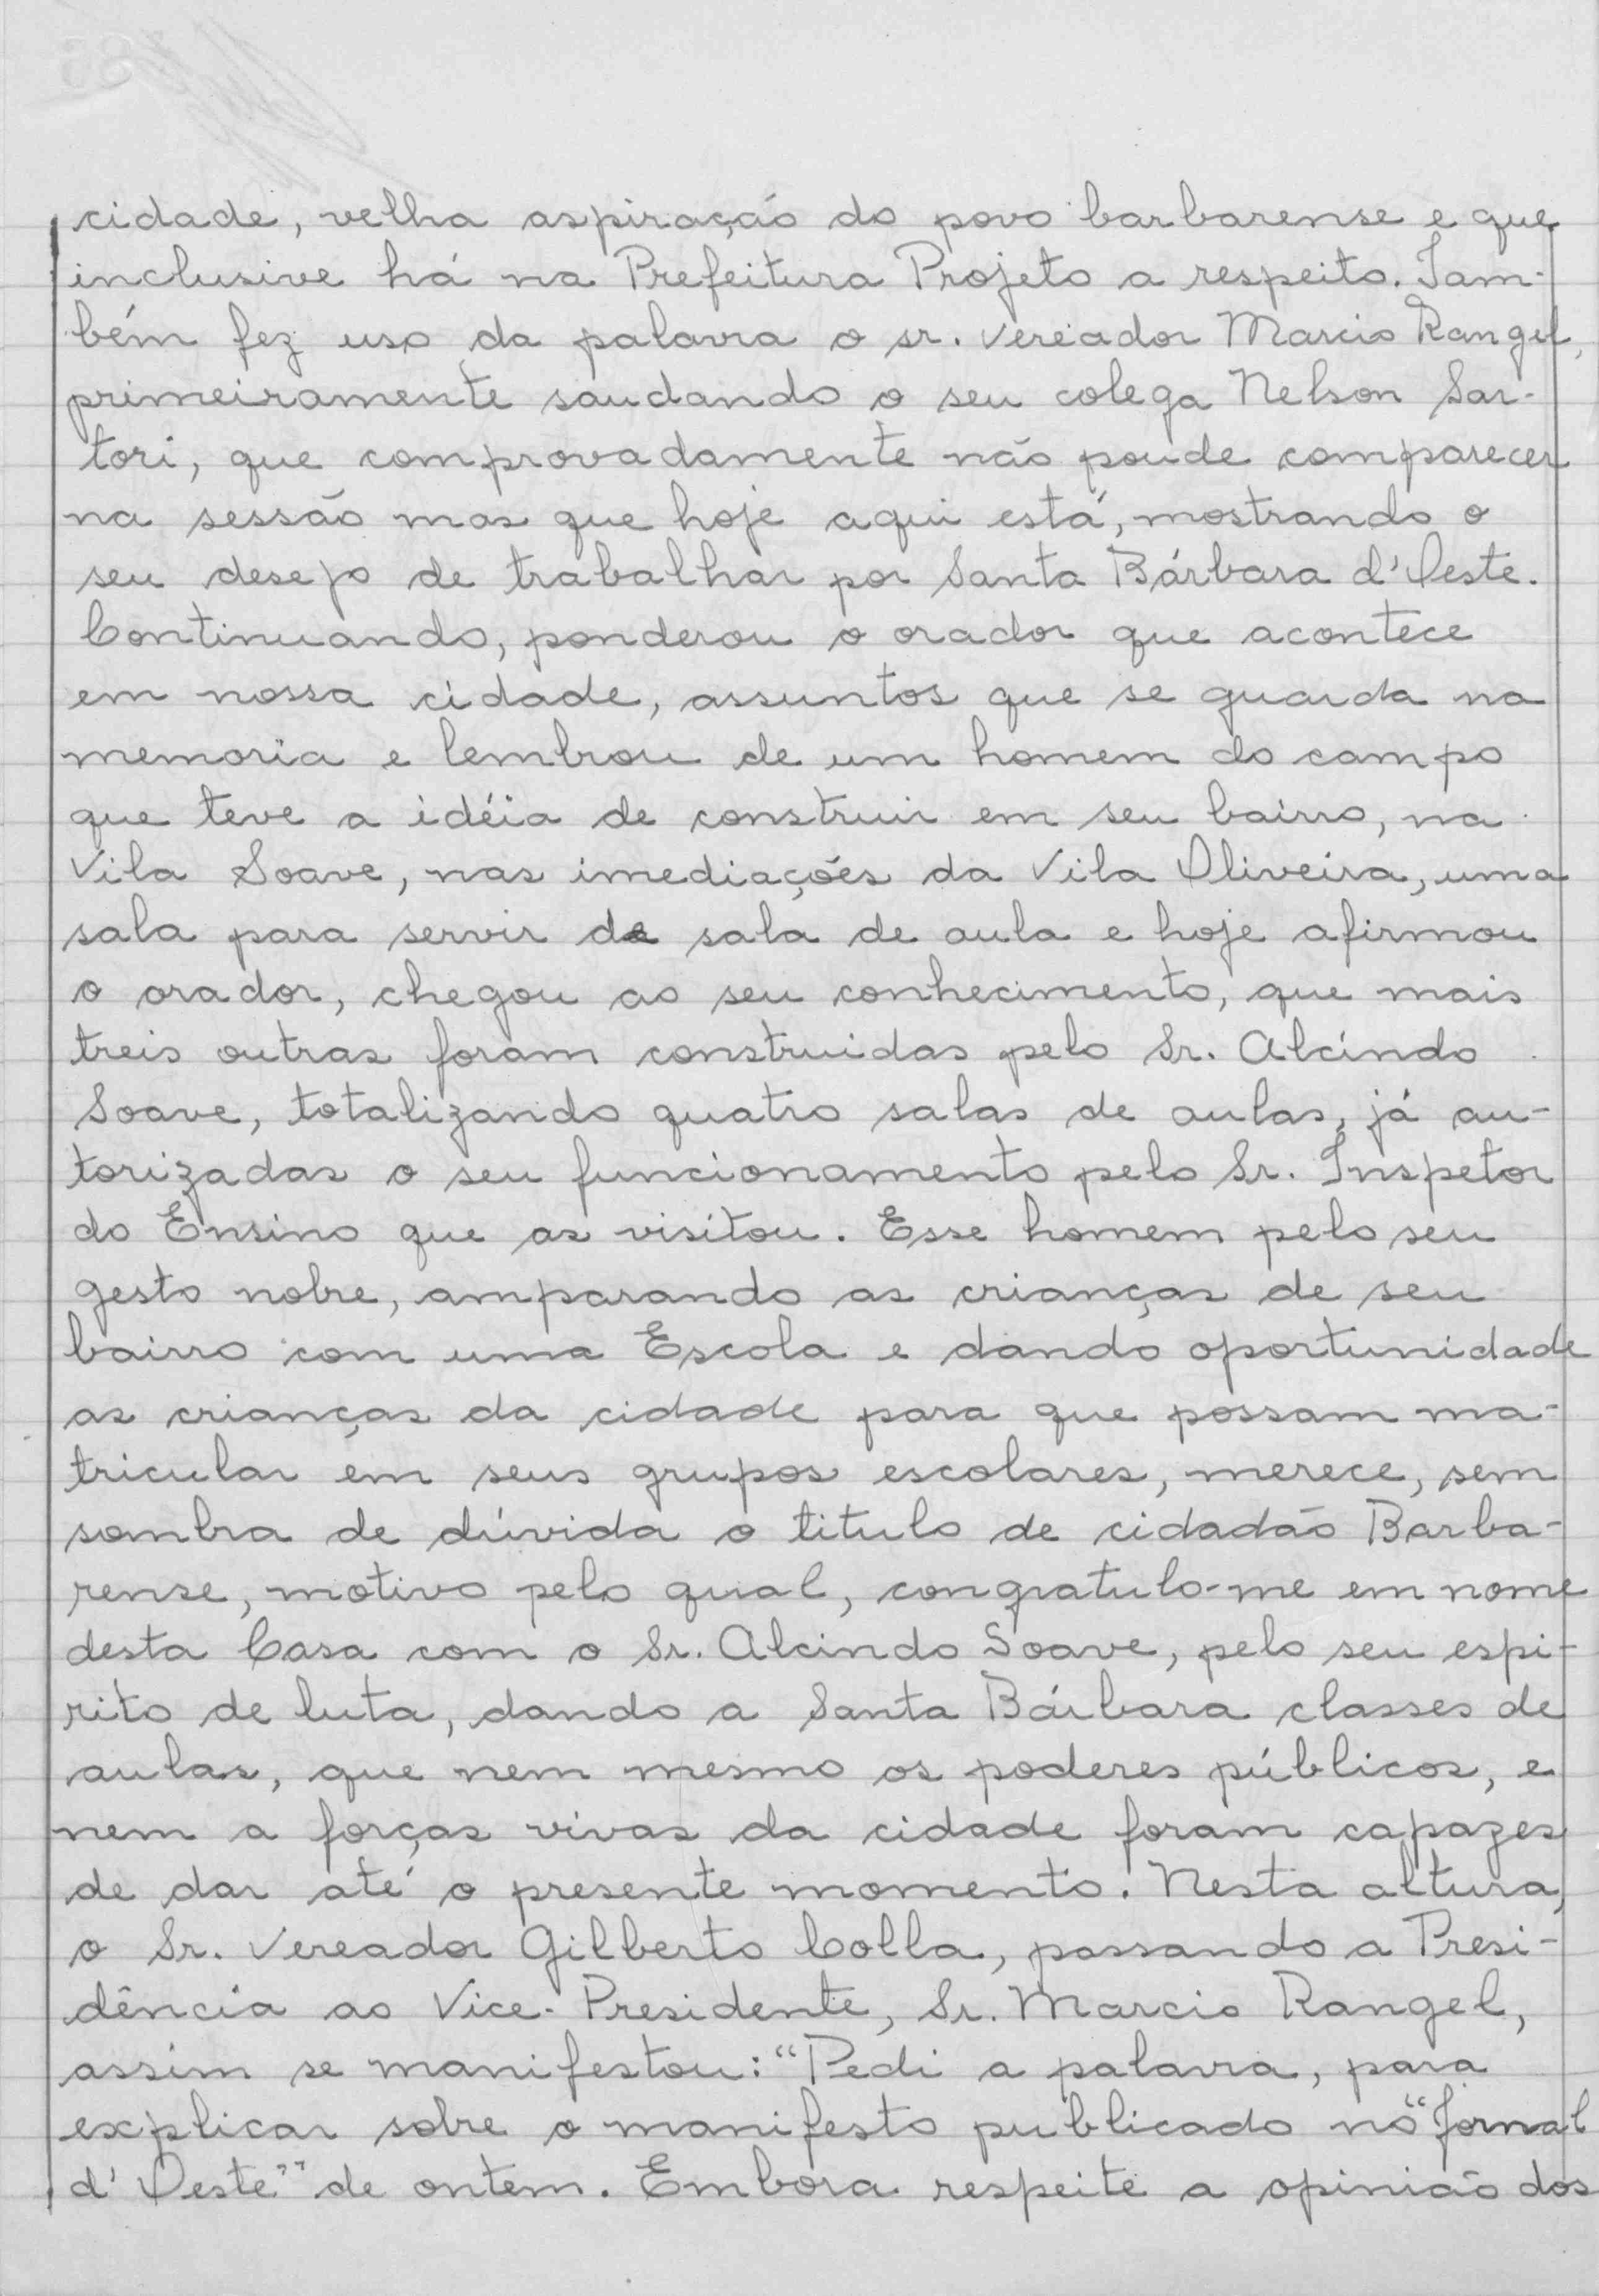 cidade, velha aspiração do povo barbarense e que
inclusive há na Prefeitura Projeto a respeito. Tam-
bém fez uso da palavra o sr. vereador Marcio Rangel,
primeiramente saudando o seu colega Nelson Sar-
tori, que comprovadamente não poude comparecer
na sessão mas que hoje aqui está, mostrando o
seu desejo de trabalhar por Santa Bárbara d'Oeste.
Continuando, ponderou o orador que acontece
em nossa cidade, assuntos que se guarda na
memoria e lembrou de um homem do campo
que teve a idéia de construir em seu bairro, na
Vila Soave, nas imediações da Vila Oliveira, uma
sala para servir de sala de aula e hoje afirmou
o orador, chegou ao seu conhecimento, que mais
treis outras foram construidas pelo Sr. Alcindo
Soave, totalizando quatro salas de aulas, já au-
torizadas o seu funcionamento pelo Sr. Inspetor
do Ensino que as visitou. Esse homem pelo seu
gesto nobre, amparando as crianças de seu
bairro com uma Escola e dando oportunidade
as crianças da cidade para que possam ma-
tricular em seus grupos escolares, merece, sem
sombra de dúvida o titulo de cidadão Barba-
rense, motivo pelo qual, congratulo-me em nome
desta Casa com o Sr. Alcindo Soave, pelo seu espi-
rito de luta, dando a Santa Bárbara classes de
aulas, que nem mesmo os poderes públicos, e
nem a forças vivas da cidade foram capazes
de dar até o presente momento. Nesta altura,
o Sr. Vereador Gilberto Colla, passando a Presi-
dência ao Vice-Presidente, Sr. Marcio Rangel,
assim se manifestou: "Pedi a palavra, para
explicar sobre o manifesto publicado no "Jornal
d'Oeste" de ontem. Embora respeite a opinião dos